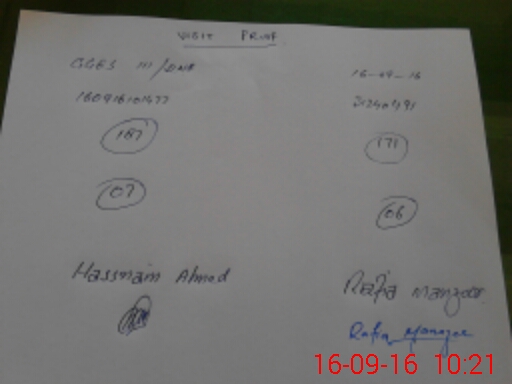 VISIT PROOF
GGES 111/DNB 16-09-16
160916101477 31240491
187 171
07 06
Hassnain Ahmed Razia Manzoor
Razia Manzoor
16-09-16 10:21